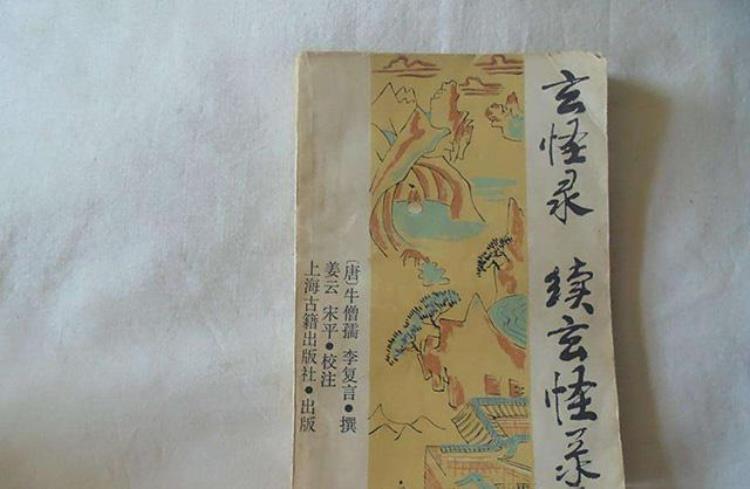 玄怪录 续玄怪录
〔唐〕牛僧孺 李复言·撰
姜云 宋平·校注
上海古籍出版社·出版